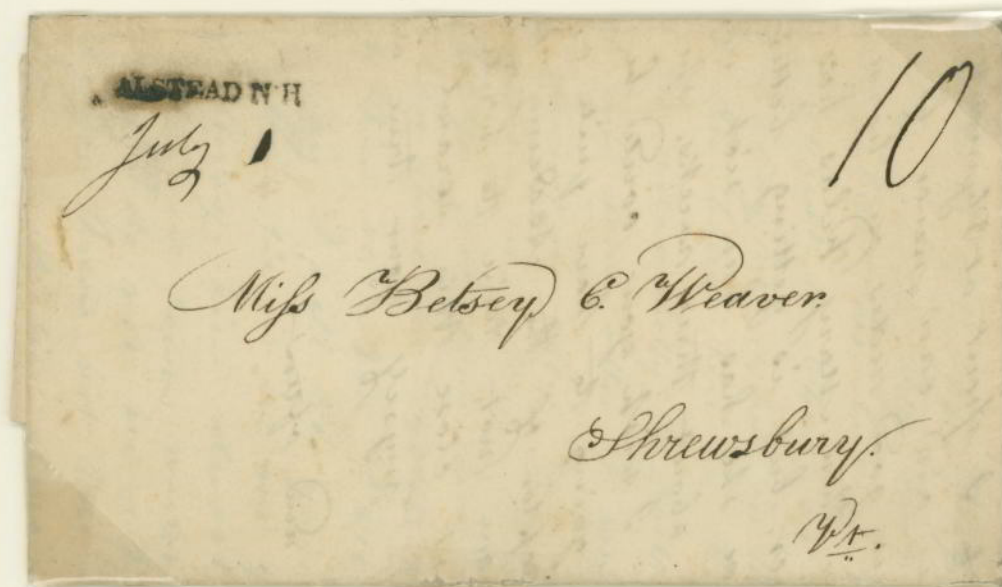 ALSTEAD N H
July 1
10
Miſs Betsey C. Weaver.
Shrewsbury.
Vt.